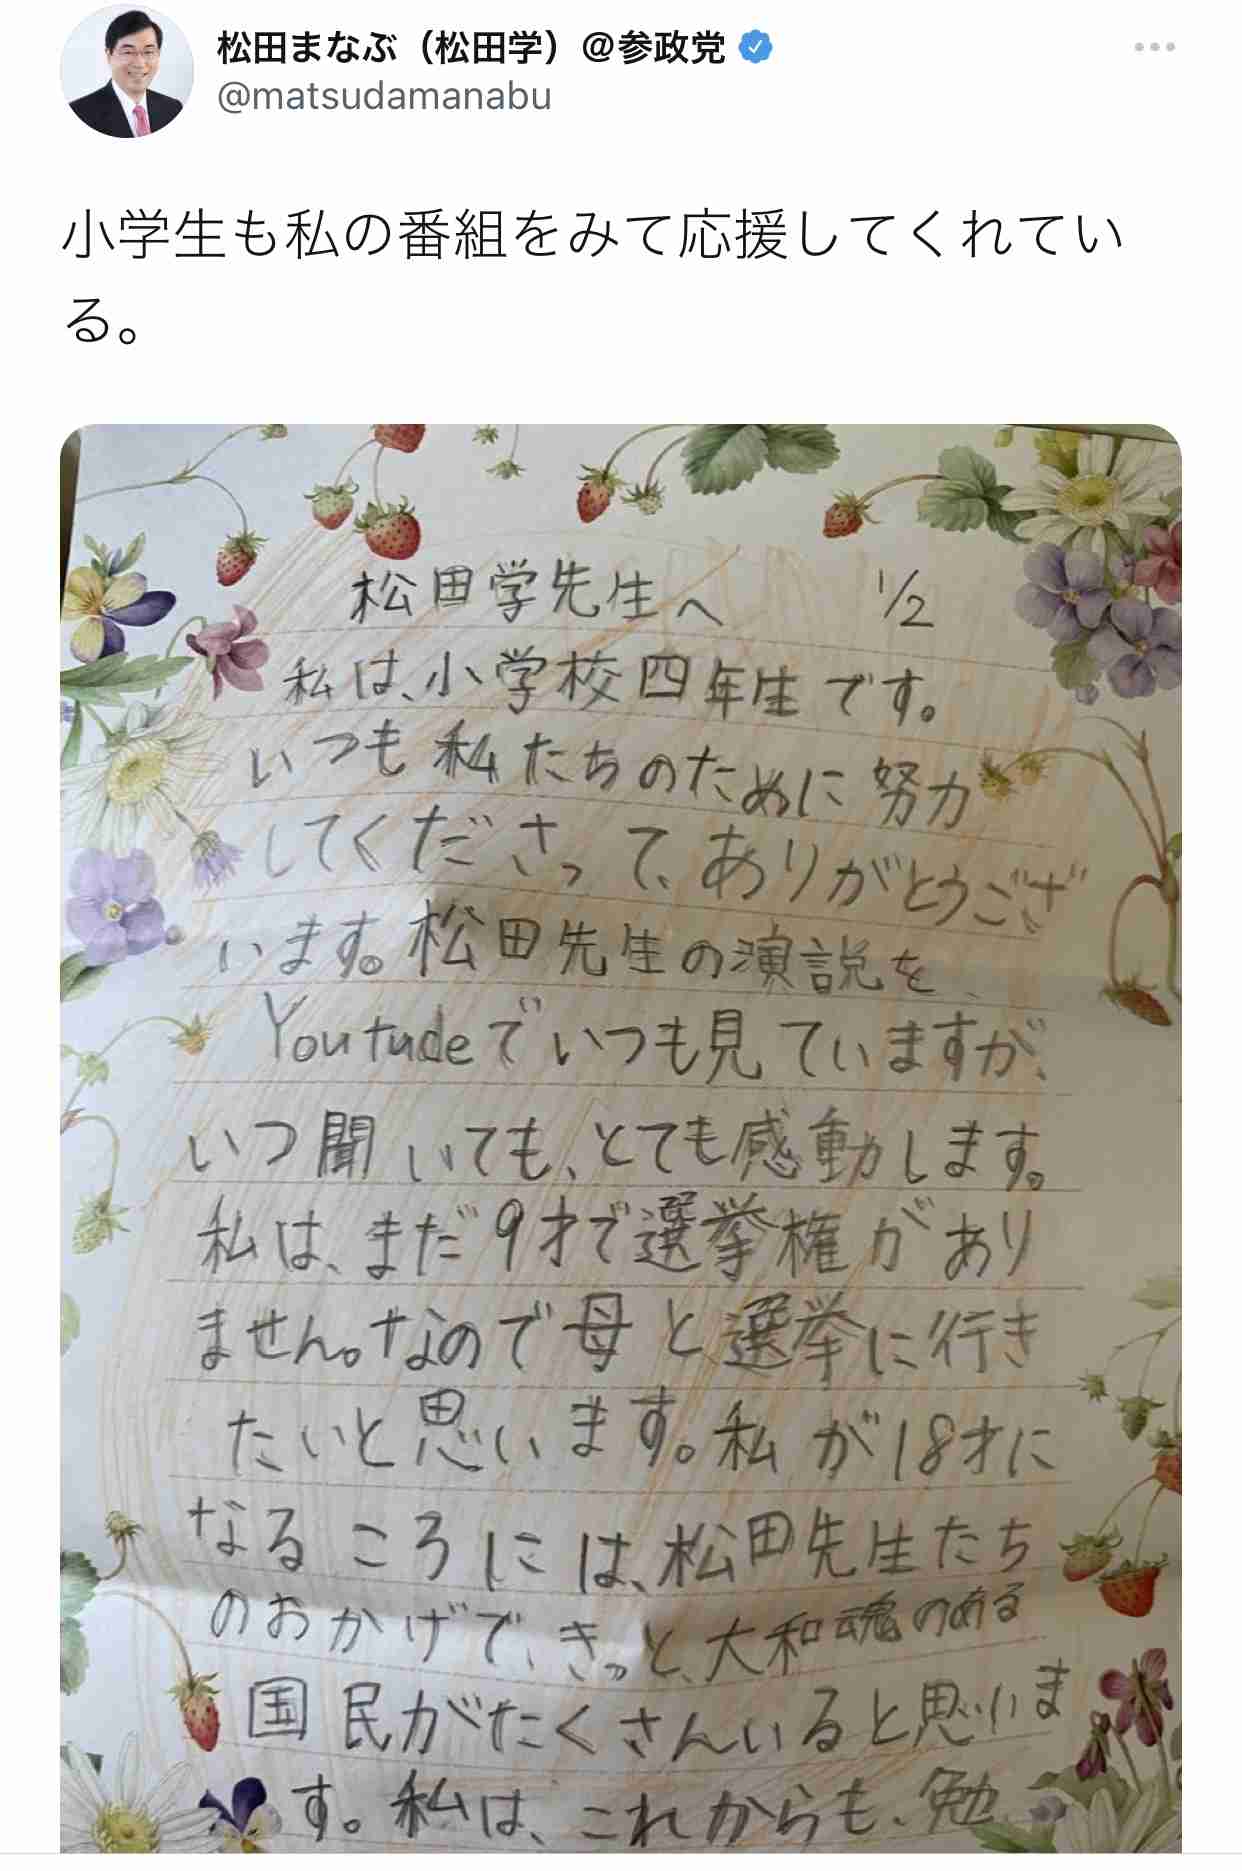 松田まなぶ（松田学）@参政党
@matsudamanabu
小学生も私の番組をみて応援してくれてい
る。
松田学先生へ 1/2
私は、小学校四年生です。
いつも私たちのために努力
してくださって、ありがとうござ
います。松田先生の演説を
Youtudeでいつも見ていますが、
いつ聞いても、とても感動します。
私は、まだ9才で選挙権があり
ません。なので母と選挙に行き
たいと思います。私が18才に
なるころには、松田先生たち
のおかげで、きっと、大和魂のある
国民がたくさんいると思いま
す。私は、これからも、勉